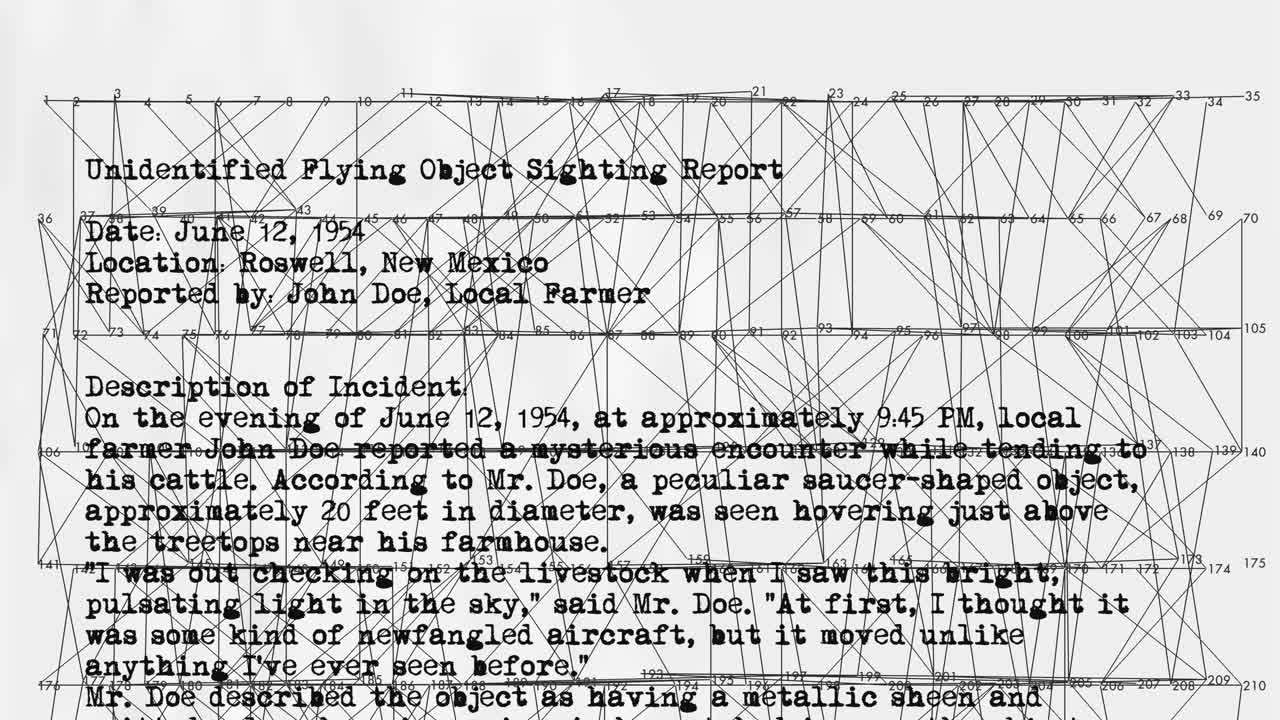 1 2 3 4 5 6 7 8 9 10 11 12 13 14 15 16 17 18 19 20 21 22 23 24 25 26 27 28 29 30 31 32 33 34 35
Unidentified Flying Object Sighting Report
36 37 38 39 40 41 42 43 44 45 46 47 48 49 50 51 52 53 54 55 56 57 58 59 60 61 62 63 64 65 66 67 68 69 70
Date: June 12, 1954
Location: Roswell, New Mexico
Reported by: John Doe, Local Farmer
71 72 73 74 75 77 78 79 80 81 82 83 84 85 86 87 88 89 90 91 92 93 94 95 96 97 98 99 100 101 102 103 104 105
Description of Incident:
On the evening of June 12, 1954, at approximately 9:45 PM, local
farmer John Doe reported a mysterious encounter while tending to
106 137 138 139 140
his cattle. According to Mr. Doe, a peculiar saucer-shaped object,
approximately 20 feet in diameter, was seen hovering just above
the treetops near his farmhouse.
141 153 159 163 165 170 171 172 173 174 175
"I was out checking on the livestock when I saw this bright,
pulsating light in the sky," said Mr. Doe. "At first, I thought it
was some kind of newfangled aircraft, but it moved unlike
anything I've ever seen before."
176 193 194 195 197 199 201 205 206 207 208 209 210
Mr. Doe described the object as having a metallic sheen and